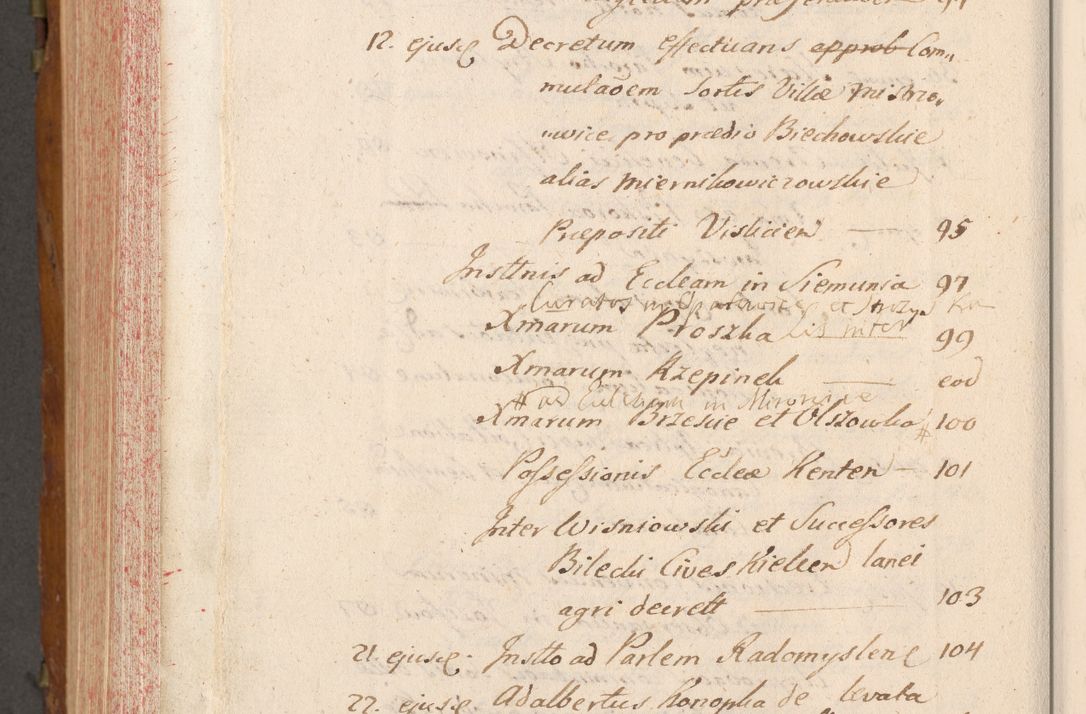 12. ejusq Decretum effectuans approb Com„
mutaõem Sortis Villæ Mistrzo„
„wice pro prædio Biechowskie
alias Miernikowiczowskie
Præpositi Vislicien — 95
Insttnis ad Eccleam in Siemunia 97
Curatos in et
Xmarum Proszka Lis inter 99
Xmarum Krzepinek — eod
# ad Eccleam in
Xmarum Brzeskie et Olszowka # 100
Possessionis Eccleæ Kenten — 101
Inter Wisniowski et Successores
Bilecki Cives Kielcen lanei
agri decrett — 103
21. ejusq. Instto ad Parlem Radomyslen 104
22. ejusq. Adalbertus Konopka de levata